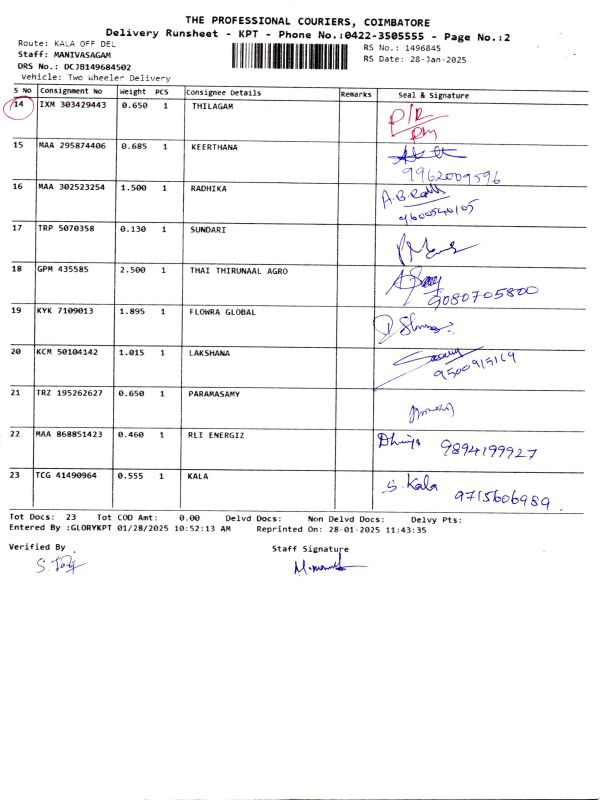 THE PROFESSIONAL COURIERS, COIMBATORE
Delivery Runsheet - KPT - Phone No.:0422-3505555 - Page No.:2
Route: KALA OFF DEL
RS No.: 1496845
Staff: MANIVASAGAM
RS Date: 28-Jan-2025
DRS No.: DCJB149684502
Vehicle: Two Wheeler Delivery
S No Consignment No Weight PCS Consignee Details Remarks Seal & Signature
14 IXM 303429443 0.650 1 THILAGAM P/R
15 MAA 295874406 0.685 1 KEERTHANA
9962009596
16 MAA 302523254 1.500 1 RADHIKA A.B.
9600540105
17 TRP 5070358 0.130 1 SUNDARI
18 GPM 435585 2.500 1 THAI THIRUNAAL AGRO
9080705800
19 KYK 7109013 1.895 1 FLOWRA GLOBAL
20 KCM 50104142 1.015 1 LAKSHANA
9500915169
21 TRZ 195262627 0.650 1 PARAMASAMY
22 MAA 868851423 0.460 1 RLI ENERGIZ 9894199927
23 TCG 41490964 0.555 1 KALA S. Kala 9715606989.
Tot Docs: 23 Tot COD Amt: 0.00 Delvd Docs: Non Delvd Docs: Delvy Pts:
Entered By :GLORYKPT 01/28/2025 10:52:13 AM Reprinted On: 28-01-2025 11:43:35
Verified By Staff Signature